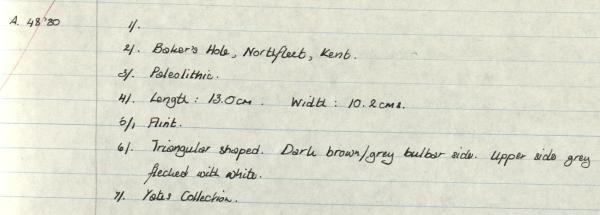 A. 48'80 1/.
2/. Baker's Hole, Northfleet, Kent.
3/. Paleolithic.
4/. Length : 13.0cm. Width : 10.2cms.
5/. Flint.
6/. Triangular shaped. Dark brown/grey bulbar side. Upper side grey
flecked with white.
7/. Yates Collection.